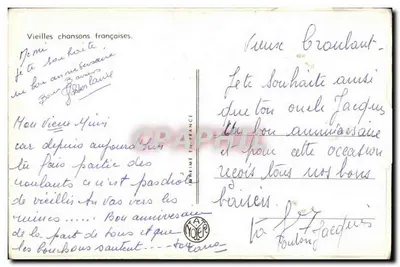 Vieilles chansons françaises.
Mimi
je te souhaite
un bon anniversaire
Bons Baisers
Mon Vieux Mimi
car depuis aujourd'hui
tu fais partie des
croulants ce n'est pas drôle
de vieillir tu vas vers les
ruines..... Bon anniversaire
de la part de tous et que
les bouchons sautent....
MADE IN FRANCE
YAR
Vieux Croulant.
Je te souhaite ainsi
que ton oncle Jacques
un bon anniversaire
et pour cette occasion
reçois tous nos bons
baisers
Ta
Tonton Jacques